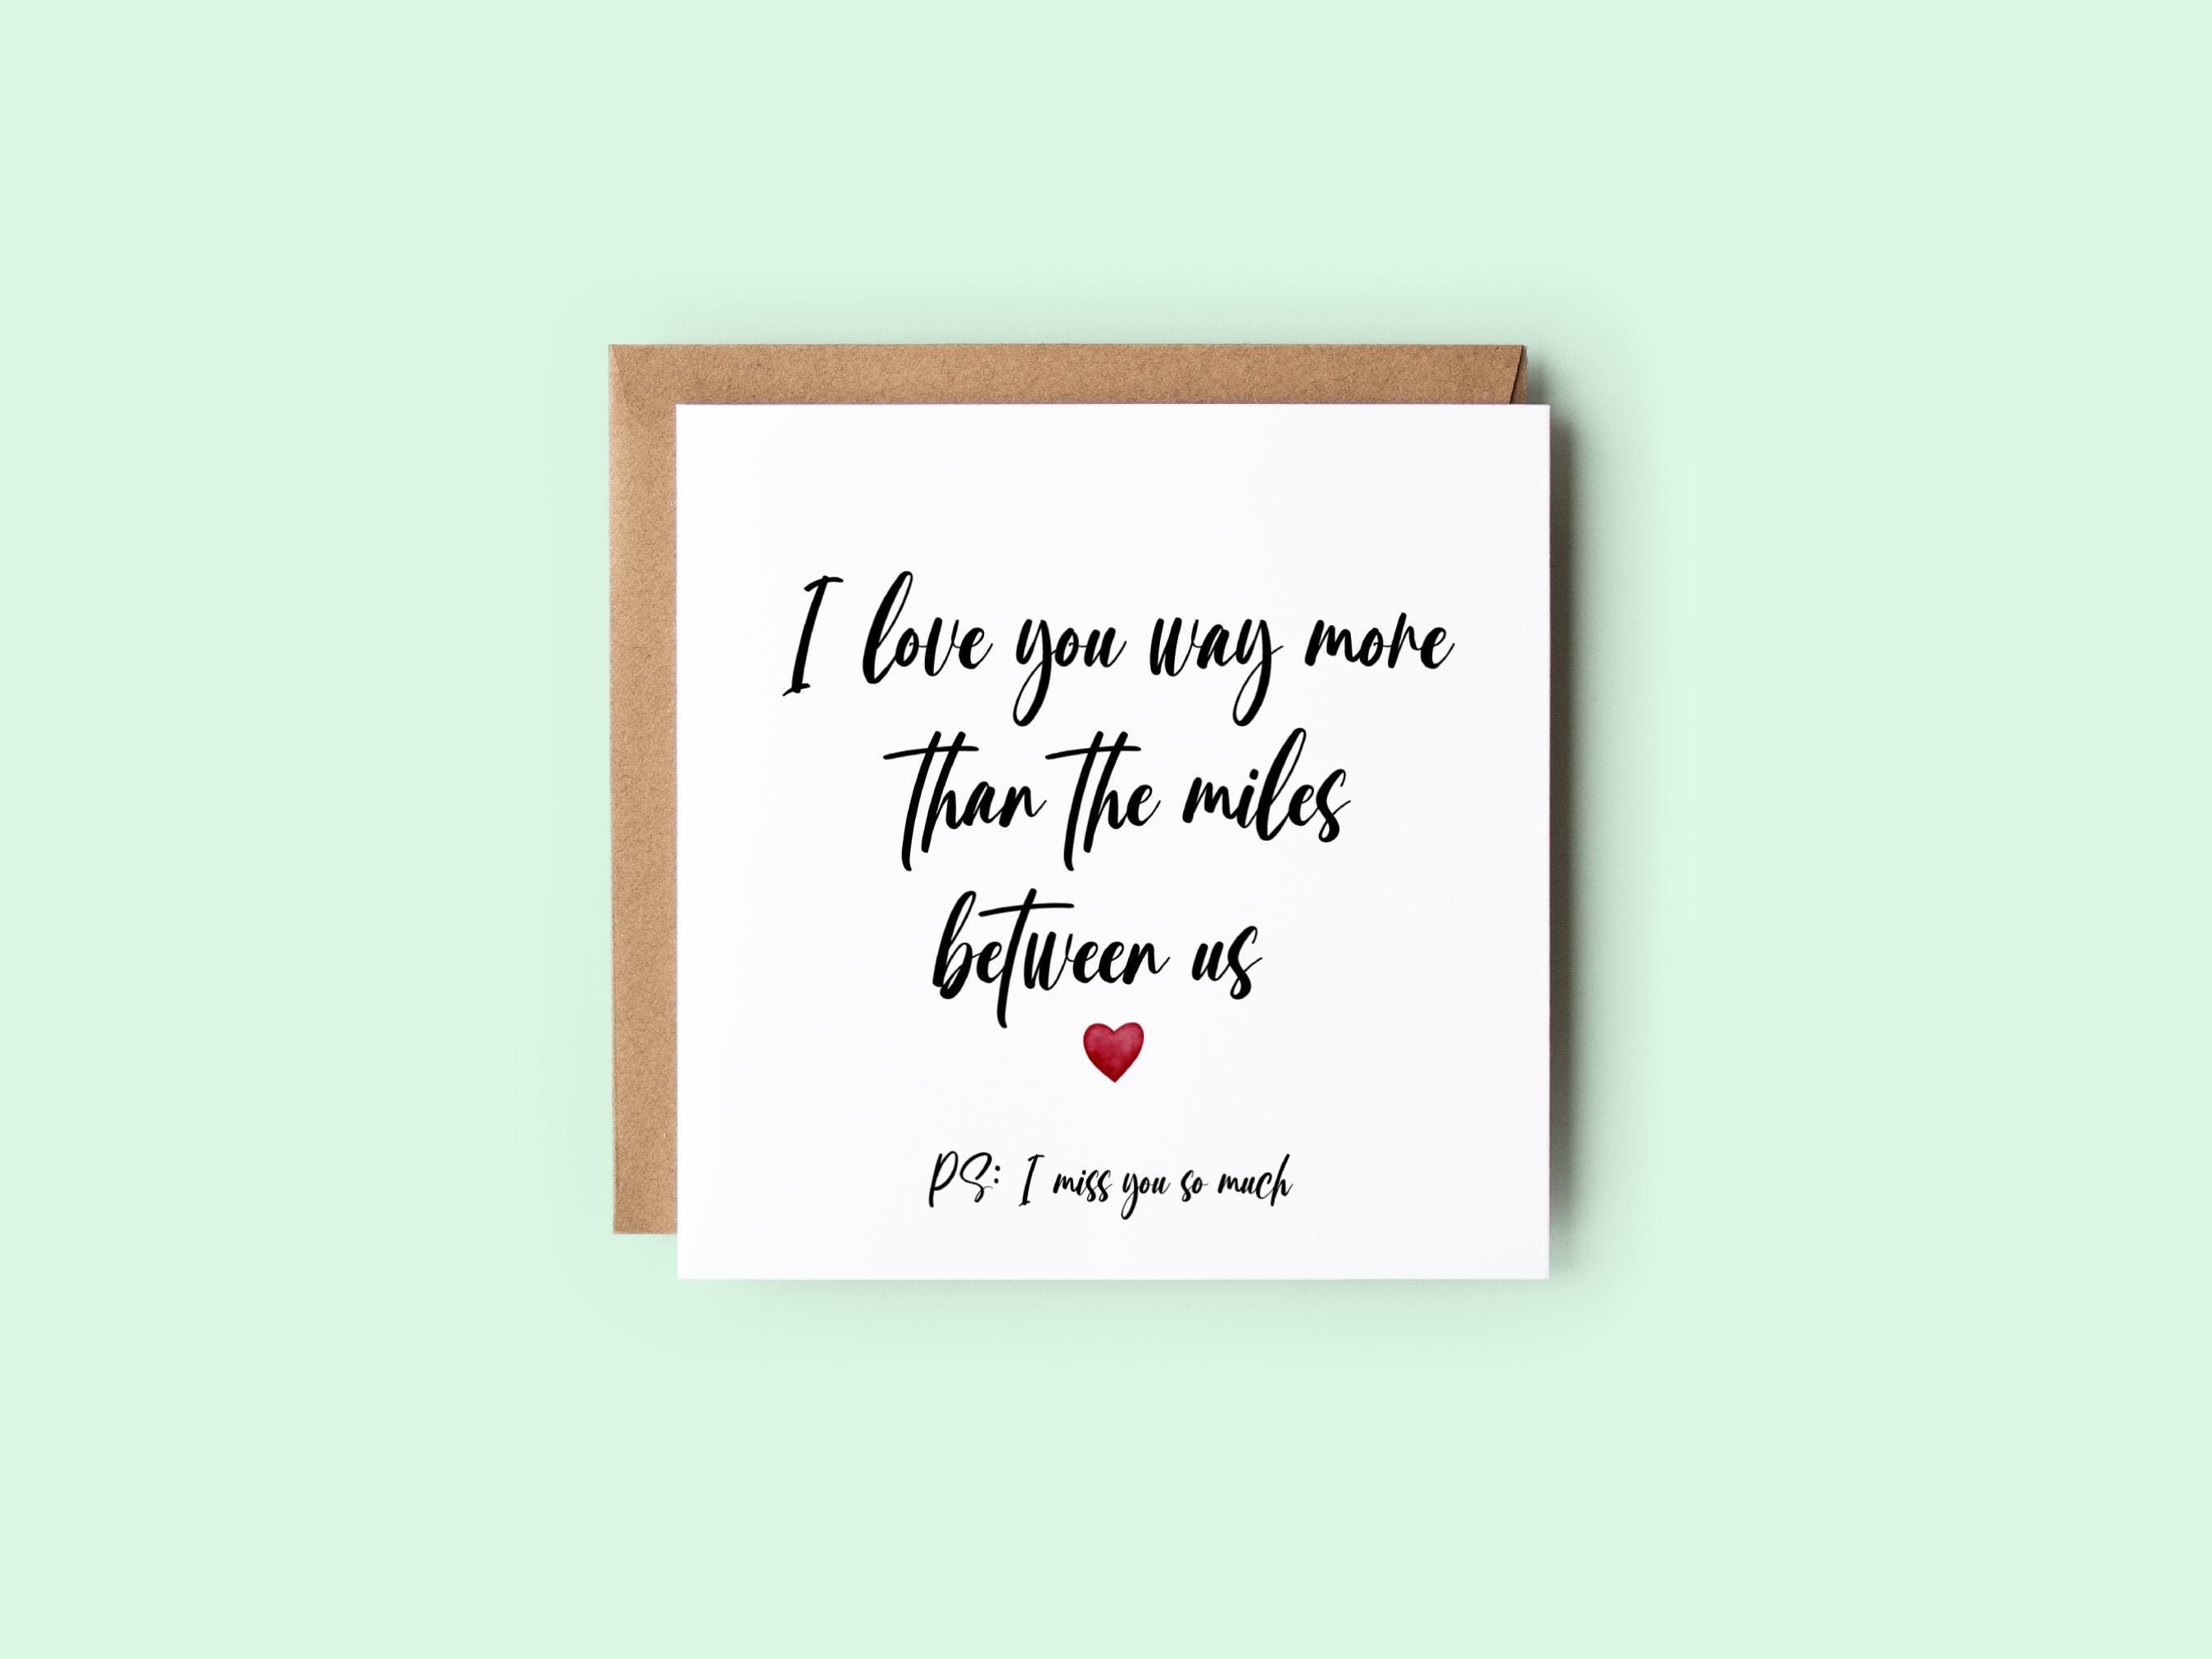 I love you way more
than the miles
between us
PS: I miss you so much